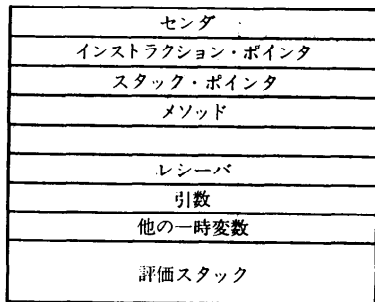 センダ
インストラクション・ポインタ
スタック・ポインタ
メソッド
レシーバ
引数
他の一時変数
評価スタック